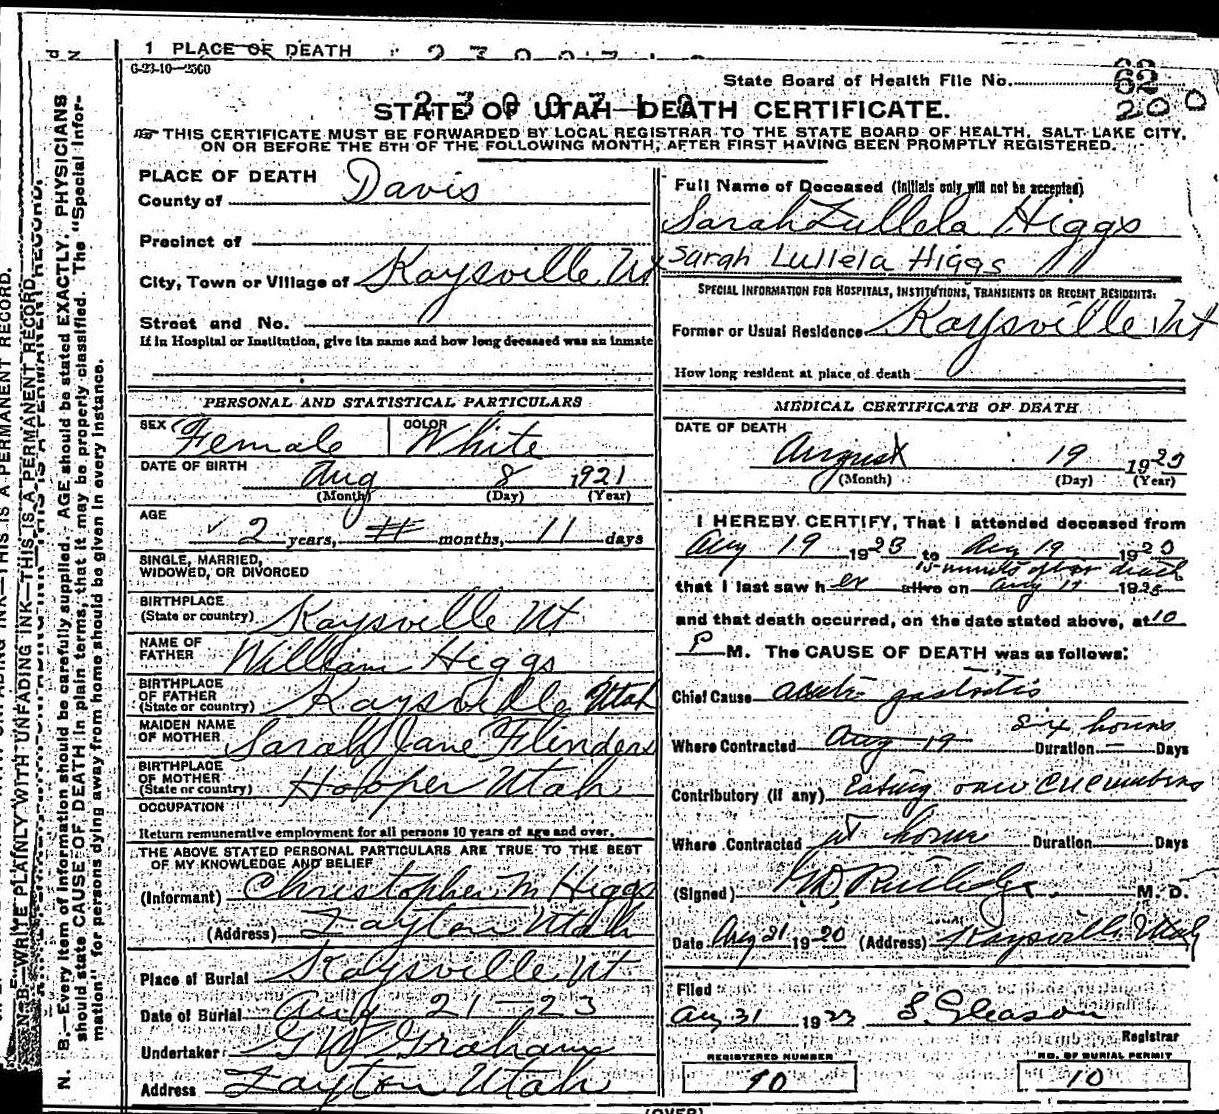 1 PLACE OF DEATH
6-23-10—2500
State Board of Health File No. 62
200
STATE OF UTAH—DEATH CERTIFICATE.
THIS CERTIFICATE MUST BE FORWARDED BY LOCAL REGISTRAR TO THE STATE BOARD OF HEALTH, SALT LAKE CITY,
ON OR BEFORE THE 5TH OF THE FOLLOWING MONTH, AFTER FIRST HAVING BEEN PROMPTLY REGISTERED.
PLACE OF DEATH
County of Davis
Precinct of
City, Town or Village of Kaysville Ut
Street and No.
If in Hospital or Institution, give its name and how long deceased was an inmate
PERSONAL AND STATISTICAL PARTICULARS
SEX Female COLOR White
DATE OF BIRTH Aug 8 1921
(Month) (Day) (Year)
AGE 2 years, months, 11 days
SINGLE, MARRIED,
WIDOWED, OR DIVORCED
BIRTHPLACE
(State or country) Kaysville Ut
NAME OF
FATHER William Higgs
BIRTHPLACE
OF FATHER
(State or country) Kaysville Utah
MAIDEN NAME
OF MOTHER Sarah Jane Flinders
BIRTHPLACE
OF MOTHER
(State or country) Hooper Utah
OCCUPATION
Return remunerative employment for all persons 10 years of age and over.
THE ABOVE STATED PERSONAL PARTICULARS ARE TRUE TO THE BEST
OF MY KNOWLEDGE AND BELIEF
(Informant) Christopher M Higgs
(Address) Layton Utah
Place of Burial Kaysville Ut
Date of Burial Aug 21—23
Undertaker GW Graham
Address Layton Utah
Full Name of Deceased (Initials only will not be accepted)
Sarah Lullela Higgs
Sarah Lullela Higgs
SPECIAL INFORMATION FOR HOSPITALS, INSTITUTIONS, TRANSIENTS OR RECENT RESIDENTS:
Former or Usual Residence Kaysville Ut
How long resident at place of death
MEDICAL CERTIFICATE OF DEATH
DATE OF DEATH
August 19 1923
(Month) (Day) (Year)
I HEREBY CERTIFY, That I attended deceased from
Aug 19 1923 to Aug 19 1923
15 minutes after death
that I last saw her alive on Aug 19 1923
and that death occurred, on the date stated above, at 10
P M. The CAUSE OF DEATH was as follows:
Chief Cause acute gastritis
six hours
Where Contracted Aug 19 Duration — Days
Contributory (if any) Eating raw cucumbers
Where Contracted at home Duration Days
(Signed) M. D.
Date Aug 21 1920 (Address) Kaysville Utah
Filed
Aug 31 1923 S. Gleason
Registrar
REGISTERED NUMBER
10
NO. OF BURIAL PERMIT
10
(OVER)
N. B.—WRITE PLAINLY WITH UNFADING INK—THIS IS A PERMANENT RECORD.
N. B.—Every item of information should be carefully supplied. AGE should be stated EXACTLY. PHYSICIANS
should state CAUSE OF DEATH in plain terms, that it may be properly classified. The "Special Infor-
mation" for persons dying away from home should be given in every instance.